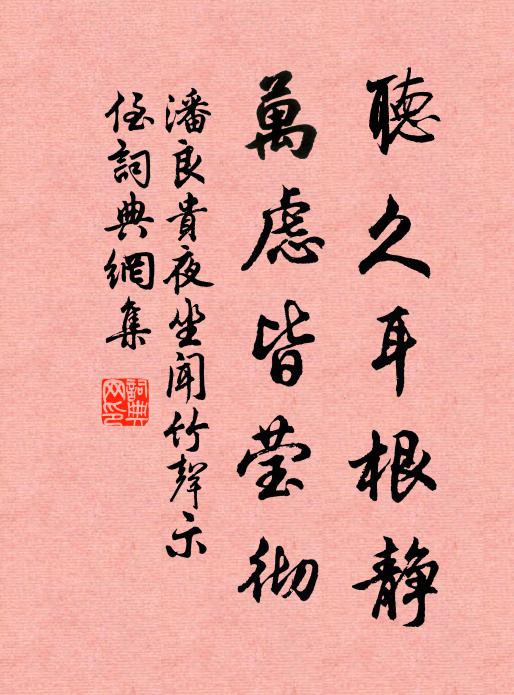 聽久耳根静
萬慮皆莹彻
潘良貴夜坐聞竹聲示
侄詞典網集
詞典
网印